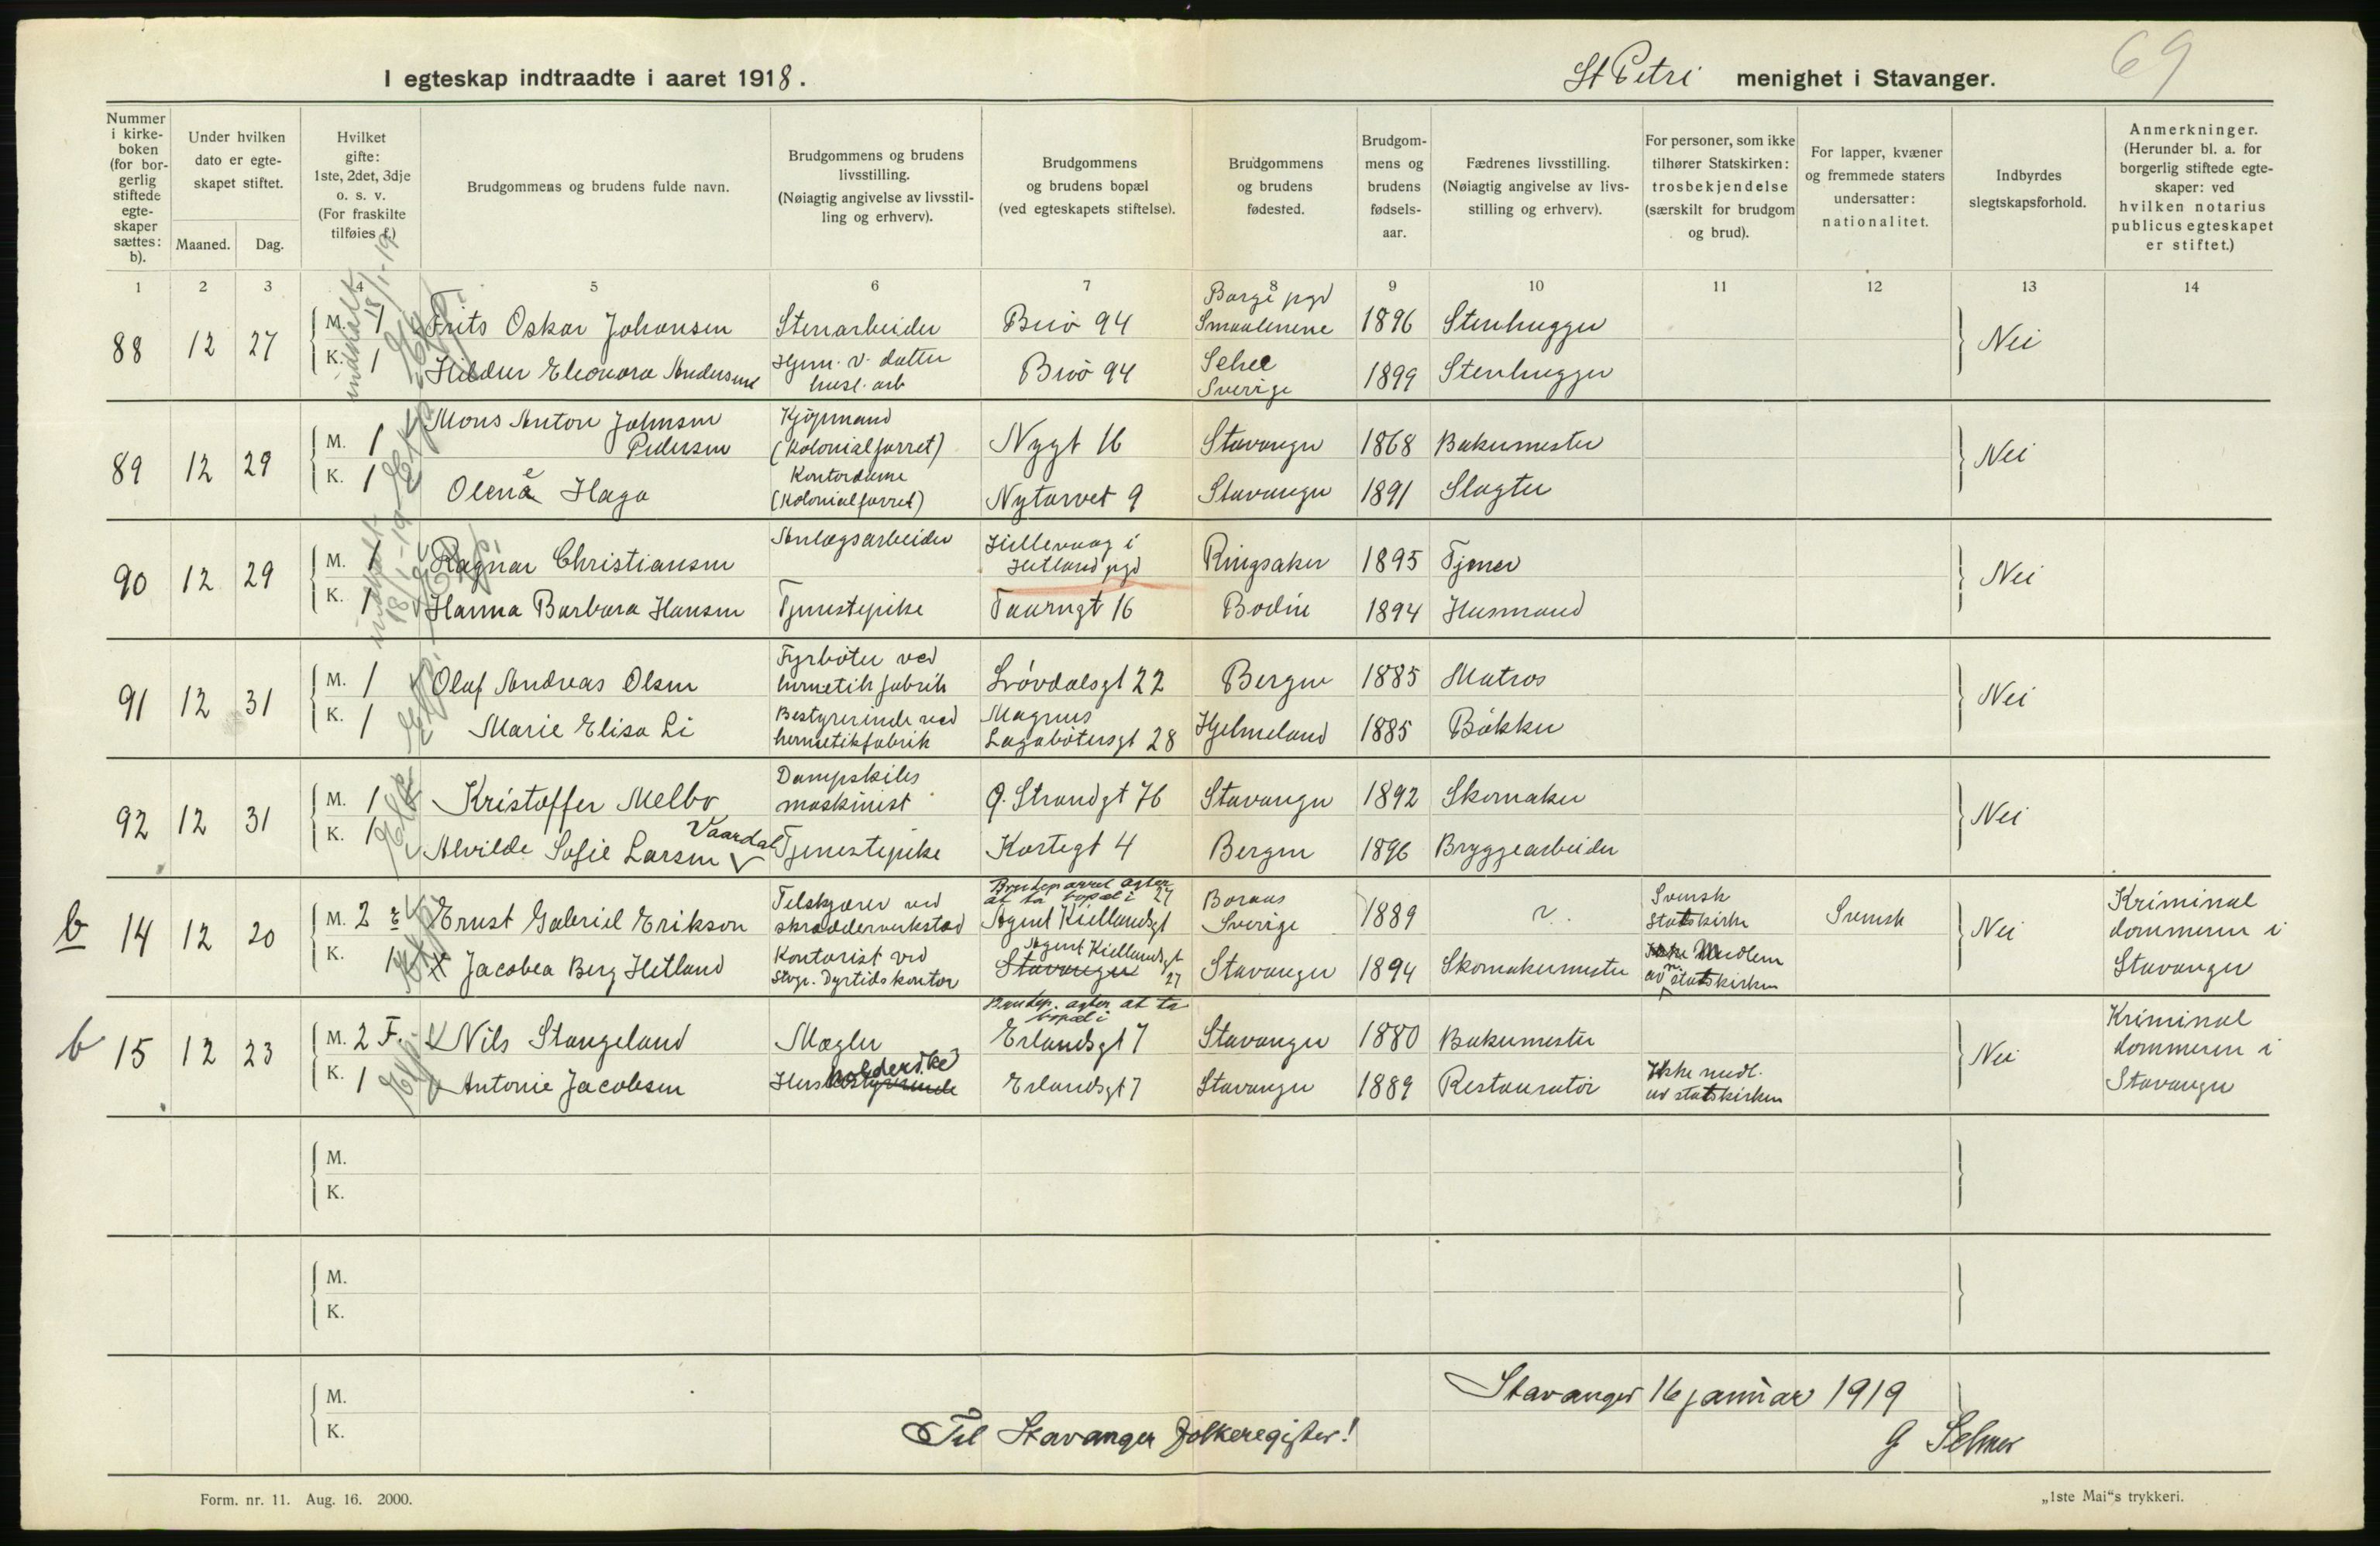 I egteskap indtraadte i aaret 1918.
St Petri menighet i Stavanger.
69
Nummer i kirke-boken (for bor-gerlig stiftede egte-skaper sættes: b).
Under hvilken dato er egte-skapet stiftet.
Maaned. Dag.
Hvilket gifte: 1ste, 2det, 3dje o. s. v. (For fraskilte tilføies f.)
Brudgommens og brudens fulde navn.
Brudgommens og brudens livsstilling. (Nøiagtig angivelse av livsstil-ling og erhverv).
Brudgommens og brudens bopæl (ved egteskapets stiftelse).
Brudgommens og brudens fødested.
Brudgom-mens og brudens fødsels-aar.
Fædrenes livsstilling. (Nøiagtig angivelse av livs-stilling og erhverv).
For personer, som ikke tilhører Statskirken: trosbekjendelse (særskilt for brudgom og brud).
For lapper, kvæner og fremmede staters undersatter: nationalitet.
Indbyrdes slegtskapsforhold.
Anmerkninger. (Herunder bl. a. for borgerlig stiftede egte-skaper: ved hvilken notarius publicus egteskapet er stiftet.)
1 2 3 4 5 6 7 8 9 10 11 12 13 14
indhalt 18/1-19
88 12 27 M. 1 Frits Oskar Johansen Stenarbeider Buö 94 Borge pgd Smaalenene 1896 Stenhugger Nei
K. 1 Hildur Eleonora Andersen Hjem. v. datter husl. arb Buö 94 Sverige 1899 Stenhugger
89 12 29 M. 1 Mons Anton Johnsen Pedersen Kjøpmand (Kolonialforret) Nygt 16 Stavanger 1868 Bakermester Nei
K. 1 Olene Haga Kontordame (Kolonialforret) Nytorvet 9 Stavanger 1891 Slagter
indhalt 18/1-19
90 12 29 M. 1 Ragnar Christiansen Anlægsarbeider Hillevaag i Hetland pgd Ringsaker 1895 Tjener Nei
K. 1 Hanna Barbara Hansen Tjenestepike Taarngt 16 Bodin 1894 Husmand
91 12 31 M. 1 Olaf Andreas Olsen Fyrböter ved hermetikfabrik Lövdalsgt 22 Bergen 1885 Matros Nei
K. 1 Marie Elisa Li Bestyrerinde ved hermetikfabrik Magnus Lagabötersgt 28 Hjelmeland 1885 Bökker
92 12 31 M. 1 Kristoffer Melbo Dampskibs maskinist Ö. Strandgt 76 Stavanger 1892 Skomaker Nei
K. 1 Alvilde Sofie Larsen Vaardal Tjenestepike Kortegt 4 Bergen 1896 Bryggearbeider
b 14 12 20 M. 2 Ernst Gabriel Erikson Tilskjærer ved skrædderverksted Brudeparret agter at ta bopæl i Agent Kiellandsgt 27 Boraas Sverige 1889 ?. Svensk Statskirke Svensk Nei Kriminal dommeren i Stavanger
K. 1 Jacobea Berg Hetland Kontorist ved Stvgr. Dyrtidskontor Stavanger Agent Kiellandsgt 27 Stavanger 1894 Skomakermester Ikke Medlem av statskirken
b 15 12 23 M. 2 F. Nils Stangeland Mægler Brudep. agter at ta bopæl i Erlandsgt 7 Stavanger 1880 Bakermester Nei Kriminal dommeren i Stavanger
K. 1 Antonie Jacobsen Husholderske Erlandsgt 7 Stavanger 1889 Restauratör Ikke medl. av statskirken
M.
K.
M.
K.
M.
K.
Stavanger 16 januar 1919
Til Stavanger Folkeregister!
G Selmer
Form. nr. 11. Aug. 16. 2000.
„1ste Mai"s trykkeri.